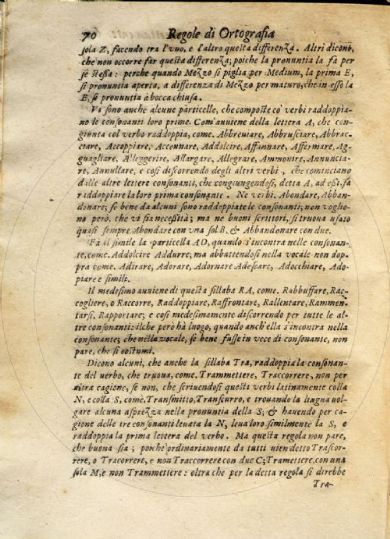 70 Regole di Ortografia
sola Z, facendo tra l'vno, e l'altro questa differenza. Altri dicono,
che non occorre far questa differenza; poiche la pronuntia la fà per
sè stessa: perche quando Mezzo si piglia per Medium, la prima E,
si pronuntia aperta, a differenza di Mezzo per maturo, che in esso la
E, si pronuntia à bocca chiusa.
Vi sono anche alcune particelle, che composte co' verbi raddoppia-
no le consonanti loro prime. Com'auuiene della lettera A, che con-
giunta col verbo raddoppia, come, Abbreuiare, Abbrusciare, Abbrac-
ciare, Accoppiare, Accennare, Addolcire, Affannare, Affermare, Ag-
guagliare, Alleggerire, Allargare, Allegrare, Ammonire, Annuncia-
re, Annullare, e così discorrendo degli altri verbi, che cominciano
dalle altre lettere consonanti, che congiungendosi, detta A, ad essi, fà
raddoppiare la loro prima consonante. Ne' verbi, Abondare, Abban-
donare; se bene da alcuni sono raddoppiate le consonanti; non voglio-
no però, che vi sia necessità; ma ne' buoni scrittori, si truoua vsato
quasi sempre Abondare con vna sol B, & Abbandonare con due.
Fà il simile la particella AD, quando s'incontra nelle consonan-
te, come, Addolcire Addurre, ma abbattendosi nella vocale non dop-
pia come, Adirare, Adorare, Adornare Adescare, Adocchiare, Adop-
pare e simili.
Il medesimo auuiene di questa sillaba RA, come, Rabbuffare, Rac-
cogliere, o Raccorre, Raddoppiare, Raffrontare, Rallentare, Rammen-
tarsi, Rapportare; e così medesimamente discorrendo per tutte le al-
tre consonanti: ilche però hà luogo, quando anch'ella s'incontra nella
consonante; che nella vocale, se bene fusse in vece di consonante, non
pare, che si costumi.
Dicono alcuni, che anche la sillaba Tra, raddoppi la consonan-
te del verbo, che truoua, come, Trammettere, Traccorrere, non per
altra cagione, se non, che scriuendosi questi verbi latinamente colla
N, e colla S, come, Transmitto, Transcurro, e trouando la lingua vol-
gare alcuna asprezza nella pronuntia della S; & hauendo per ca-
gione delle tre consonanti leuata la N, leua loro similmente la S, e
raddoppia la prima lettera del verbo. Ma questa regola non pare,
che buona sia; poiche ordinariamente da tutti vien detto Trascor-
rere, o Tracorrere, e non Traccorrere con due C; Tramettere, con vna
sola M, e non Trammettere: oltra che per la detta regola si direbbe
Tra-